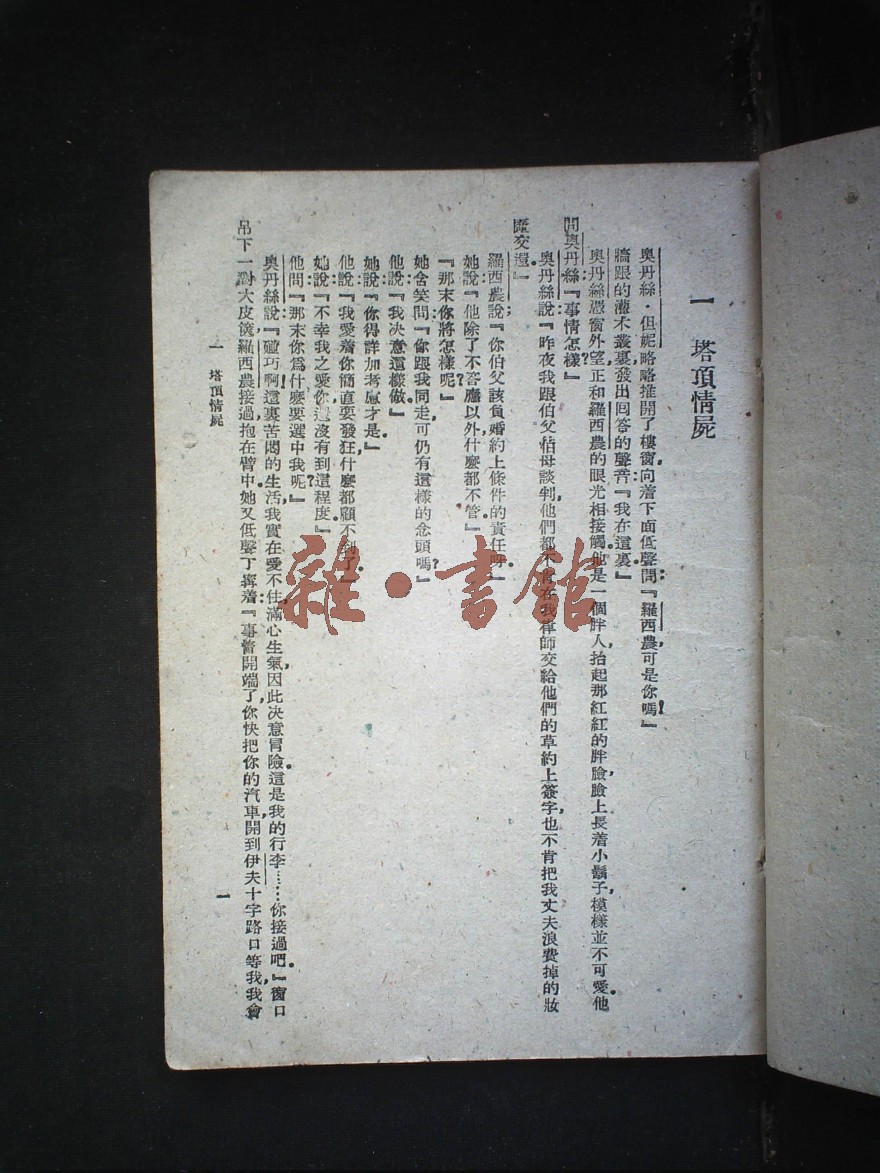 一 塔頂情屍
奧丹絲·但妮略略推開了樓窗，向着下面低聲問：『羅西農，可是你嗎！』
牆跟的灌木叢裏，發出回答的聲音：『我在這裏。』
奧丹絲憑窗外望，正和羅西農的眼光相接觸。他是一個胖人，抬起那紅紅的胖臉，臉上長着小鬍子，模樣並不可愛。他
問奧丹絲：『事情怎樣？』
奧丹絲說：『昨夜我跟伯父伯母談判，他們都不肯在我律師交給他們的草約上簽字，也不肯把我丈夫浪費掉的妝
奩交還。』
羅西農說：『你伯父該負婚約上條件的責任呀。』
她說：『他除了不答應以外，什麼都不管。』
『那末你將怎樣呢？』
她含笑問：『你跟我同走，可仍有這樣的念頭嗎？』
他說：『我決意這樣做。』
她說：『你得詳加考慮才是。』
他說：『我愛着你，簡直要發狂，什麼都顧不到了。』
她說：『不幸我之愛你，還沒有到這程度。』
他問：『那末你爲什麼要選中我呢？』
奧丹絲說：『碰巧啊！這裏苦悶的生活，我實在愛不住，滿心生氣，因此决意冒險。這是我的行李……你接過吧。』窗口
吊下一對大皮篋，羅西農接過抱在臂中。她又低聲丁寧着：『事嘗開端了，你快把你的汽車，開到伊夫十字路口等我，我會
一 塔頂情屍
一
雜·書館